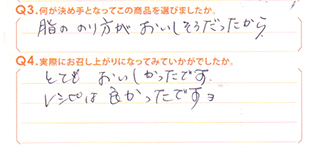 Q3.何が決め手となってこの商品を選びましたか。
脂ののり方がおいしそうだったから
Q4.実際にお召し上がりになってみていかがでしたか。
とても おいしかったです.
レシピは良かったですヨ